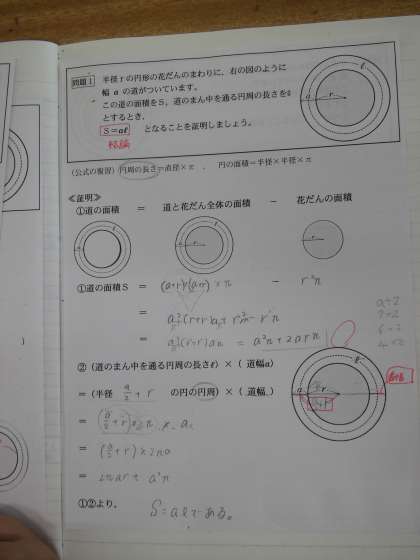 問題1 半径rの円形の花だんのまわりに、右の図のように
幅 a の道がついています。
この道の面積をS、道のまん中を通る円周の長さをℓ
とするとき、
S=aℓ となることを証明しましょう。
結論
ℓ
a r
(公式の復習) 円周の長さ=直径×π 、 円の面積=半径×半径×π
≪証明≫
①道の面積 = 道と花だん全体の面積 - 花だんの面積
①道の面積S = (a+r)(a+r)×π - r²π
=
= a²π+2arπ
②(道のまん中を通る円周の長さℓ)×(道幅a)
=(半径 a/2+r の円の円周)×(道幅)
= (a/2+r)×2π × a
= (a/2+r)×2πa
= 2πar+a²π
①②より、 S=aℓである。